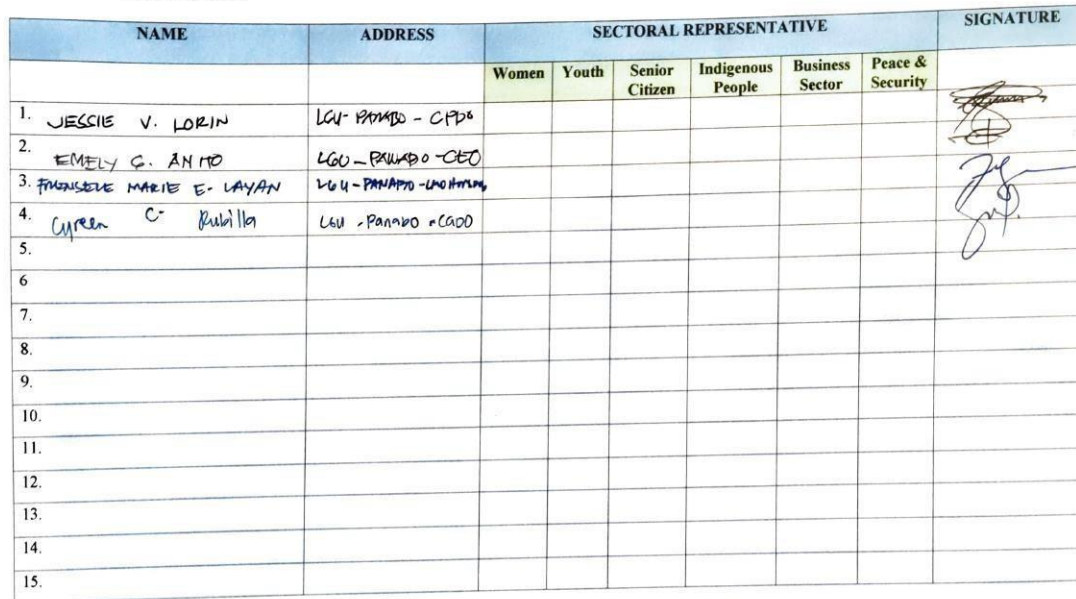 NAME ADDRESS SECTORAL REPRESENTATIVE SIGNATURE
Women Youth Senior Citizen Indigenous People Business Sector Peace & Security
1. JESSIE V. LORIN LGU-PANABO - CPDO
2. EMELY G. ANITO LGU - PANABO - CEO
3. MARIE E. LAYAN LGU - PANABO -
4. Cyreen C. Rubilla LGU - Panabo -
5.
6
7.
8.
9.
10.
11.
12.
13.
14.
15.